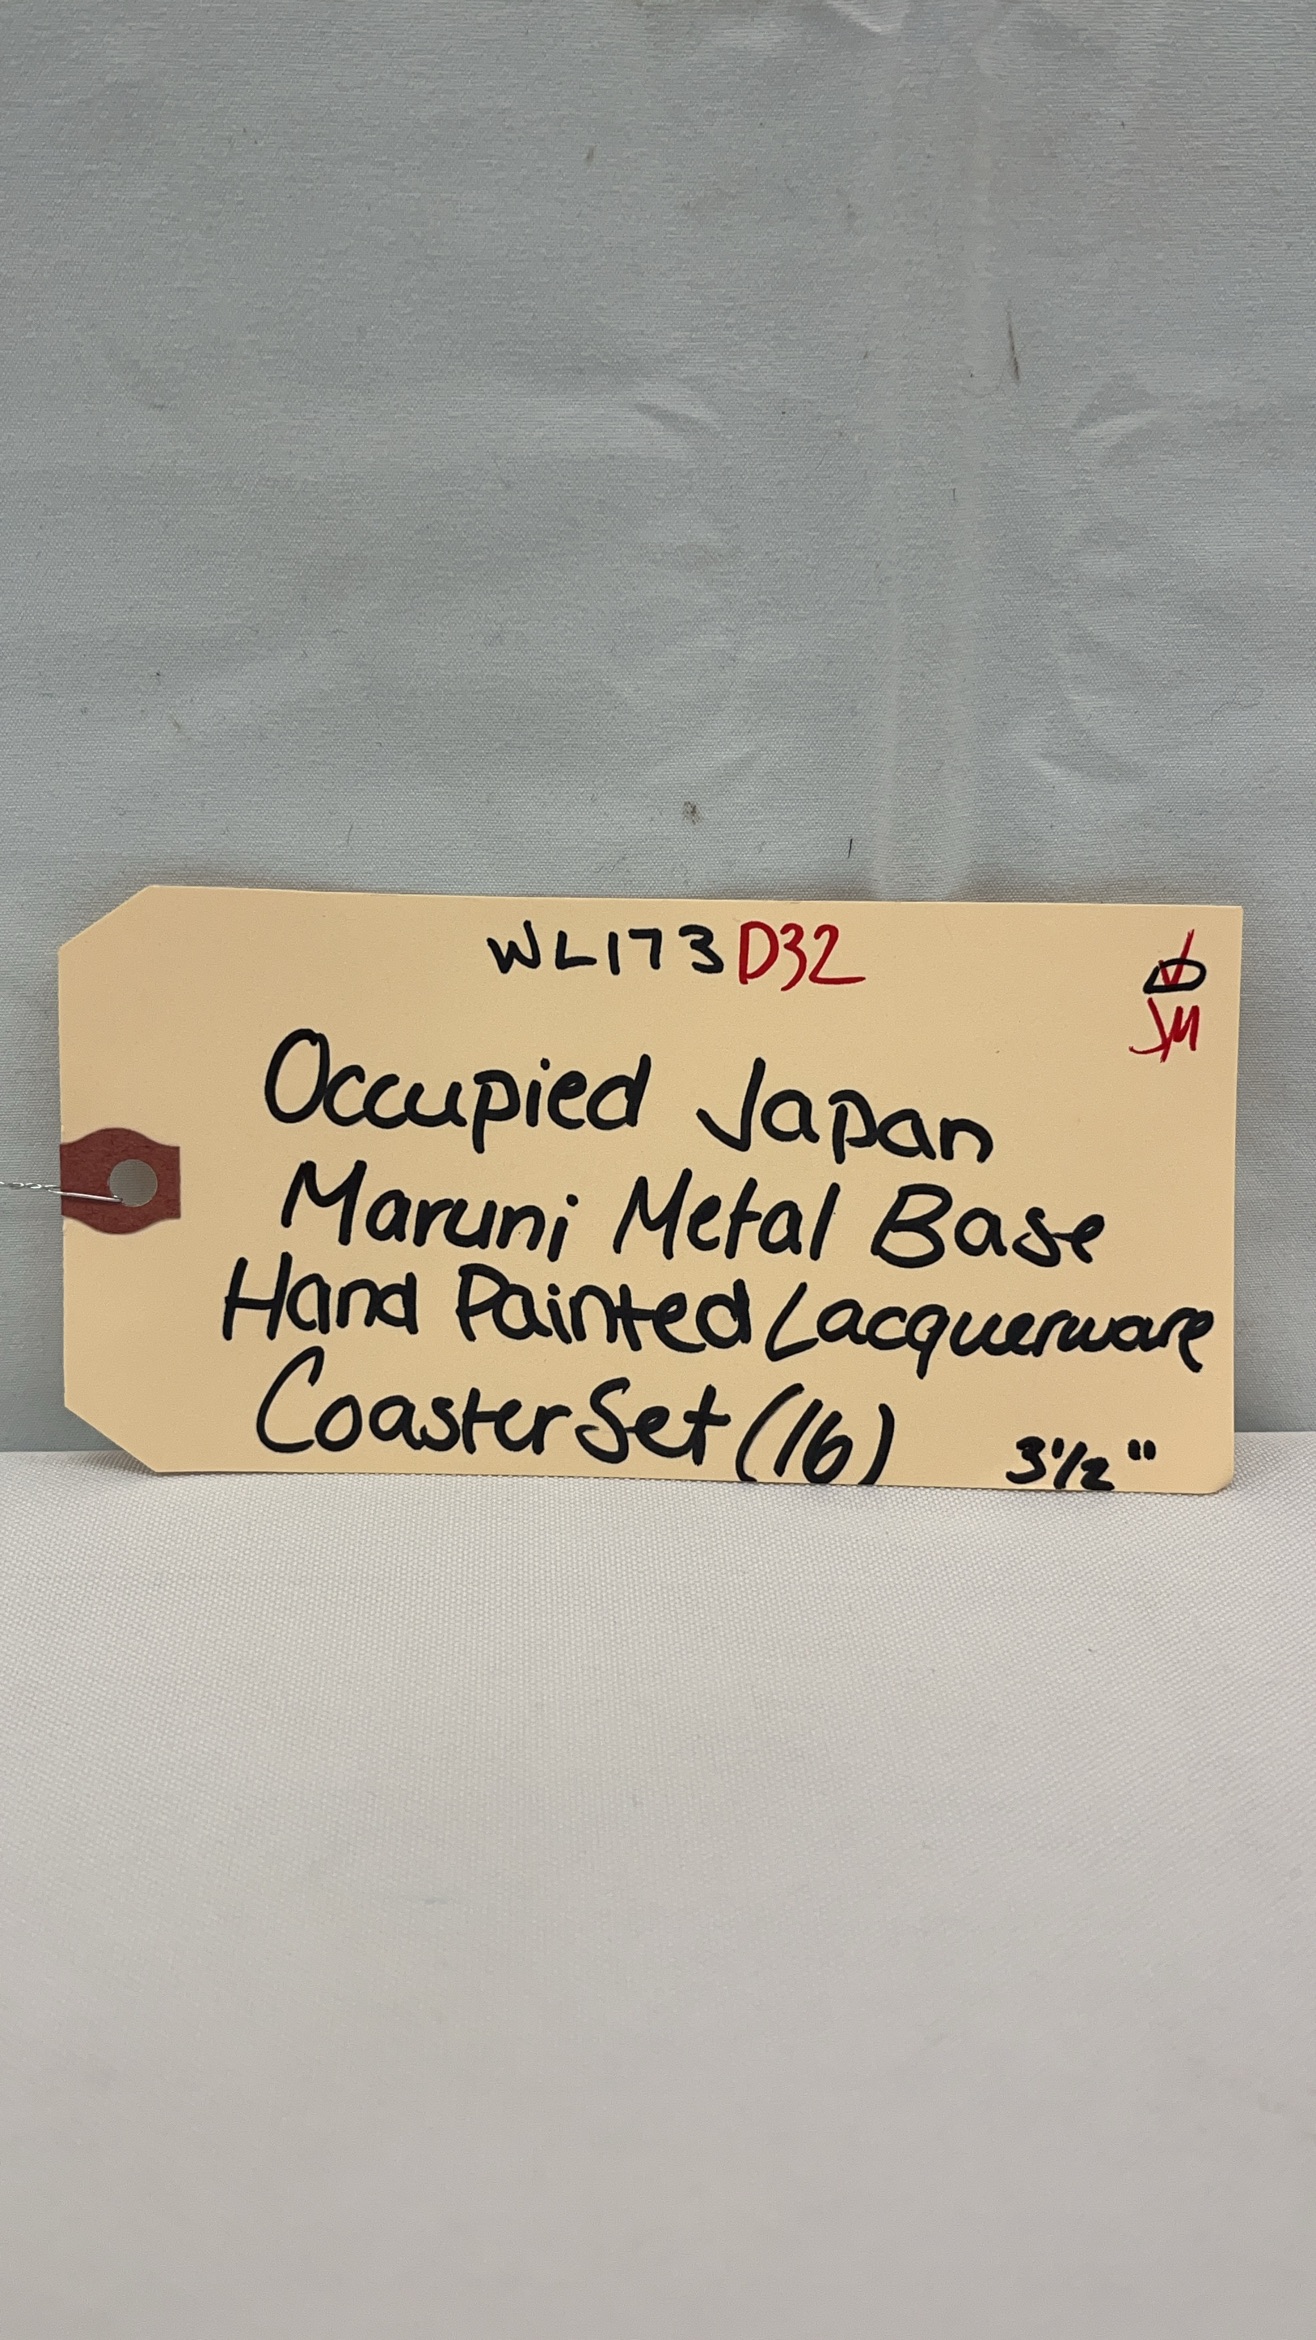 WL173 D32
JM
Occupied Japan
Maruni Metal Base
Hand Painted Lacquerware
Coaster Set (16) 3 1/2"